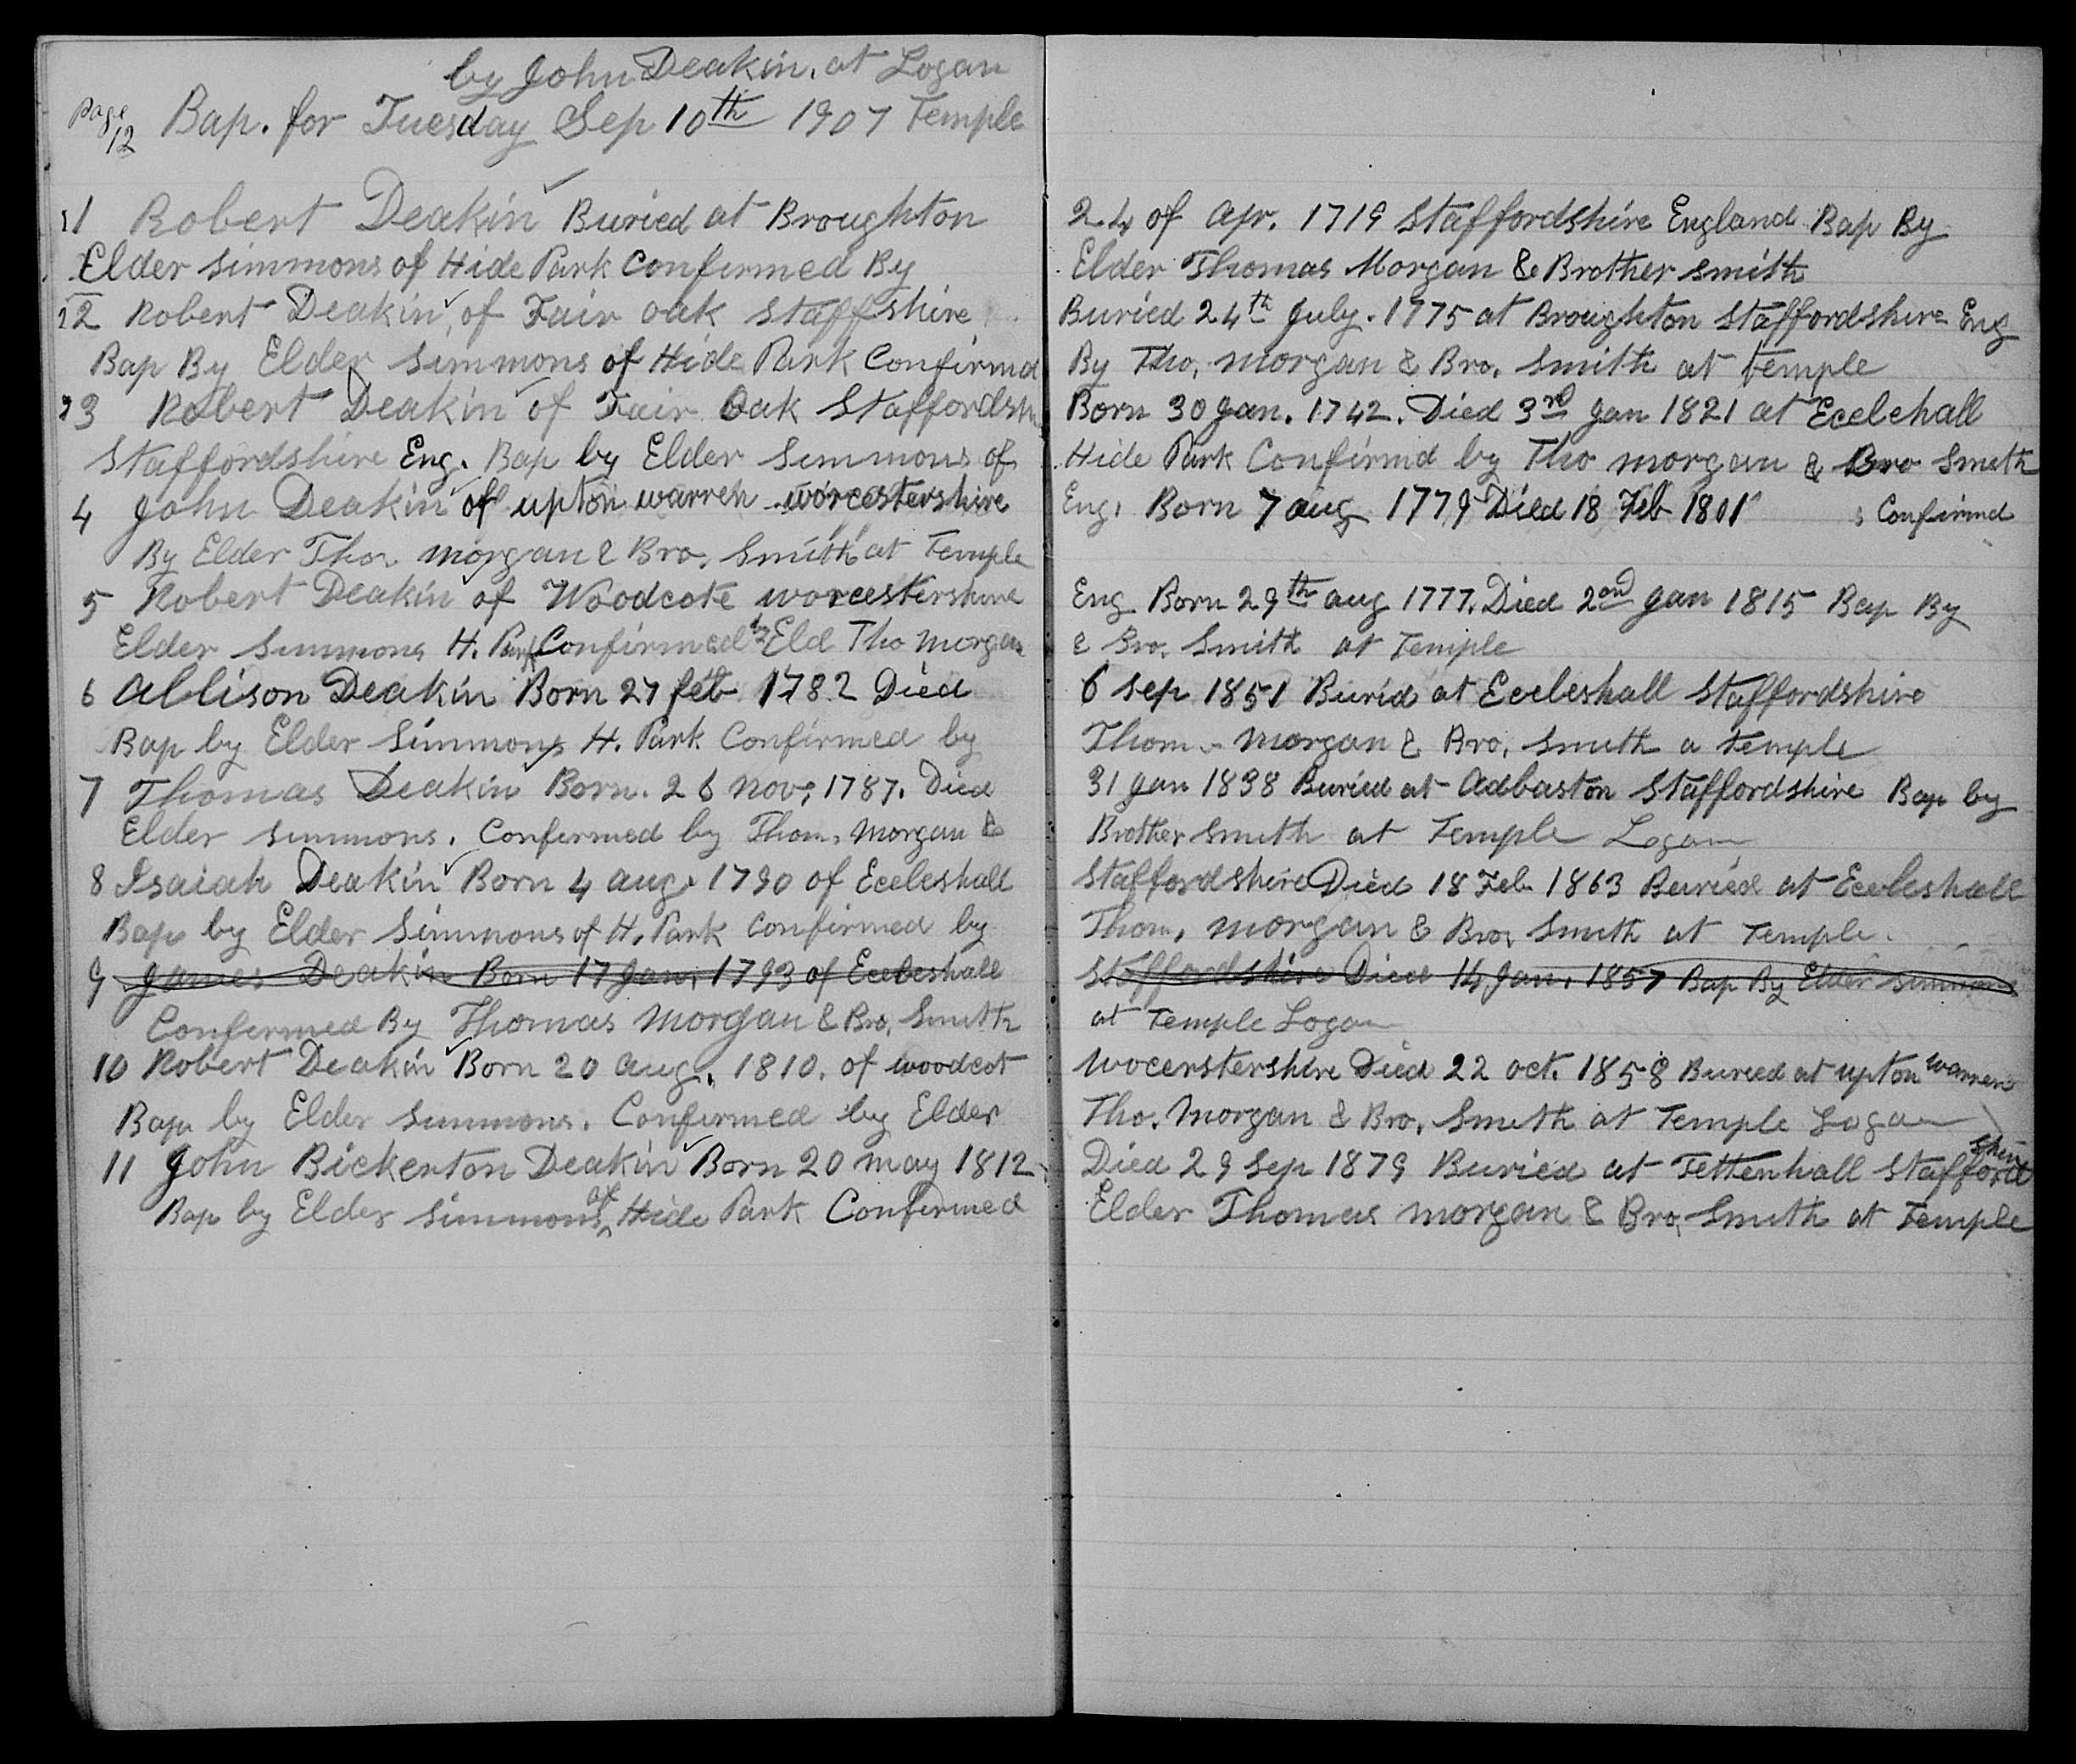 by John Deakin. at Logan
Page 12 Bap. for Tuesday Sep 10th 1907 Temple
1 Robert Deakin Buried at Broughton 24 of Apr. 1719 Staffordshire England Bap By
Elder Simmons of Hide Park Confirmed By Elder Thomas Morgan & Brother Smith
2 Robert Deakin, of Fair Oak Staffshire Buried 24th July. 1775 at Broughton Staffordshire Eng
Bap By Elder Simmons of Hide Park Confirmd By Tho, Morgan & Bro. Smith at Temple
3 Robert Deakin of Fair Oak Staffordsh Born 30 Jan. 1742. Died 3rd Jan 1821 at Ecclehall
Staffordshire Eng. Bap by Elder Simmons of Hide Park Confirmd by Tho Morgan & Bro Smith
4 John Deakin of Upton Warren Worcestershire Eng, Born 7 Aug 1779 Died 18 Feb 1801 Confirmd
By Elder Tho. Morgan & Bro. Smith at Temple
5 Robert Deakin of Woodcote Worcestershire Eng Born 29th Aug 1777. Died 2ond Jan 1815 Bap By
Elder Simmons H. Park Confirmed by Eld Tho Morgan & Bro. Smith at Temple
6 Allison Deakin Born 27 Feb 1782 Died 6 Sep 1851 Burid at Eccleshall Staffordshire
Bap by Elder Simmons H. Park Confirmed by Thom - Morgan & Bro, Smith a Temple
7 Thomas Deakin Born. 26 Nov, 1787. Died 31 Jan 1838 Buried at Adbaston Staffordshire Bap by
Elder Simmons. Confirmed by Thom. Morgan & Brother Smith at Temple Logan
8 Isaiah Deakin Born 4 Aug. 1790 of Eccleshall Staffordshire Died 18 Feb 1863 Buried at Eccleshall
Bap by Elder Simmons of H. Park Confirmed by Thom, Morgan & Bro, Smith at Temple.
9 James Deakin Born 17 Jan, 1793 of Eccleshall Staffordshire Died 14 Jan, 1857 Bap By Elder Simmons
Confirmed By Thomas Morgan & Bro, Smith at Temple Logan
10 Robert Deakin Born 20 Aug, 1810. of Woodcot Wocerstershire Died 22 Oct. 1858 Buried at Upton Warren
Bap by Elder Simmons. Confirmed by Elder Tho. Morgan & Bro. Smith at Temple Logan
11 John Bickerton Deakin Born 20 May 1812 Died 29 Sep 1879 Buried at Tettenhall Stafford shire
Bap by Elder Simmons of Hide Park Confirmed Elder Thomas Morgan & Bro, Smith at Temple